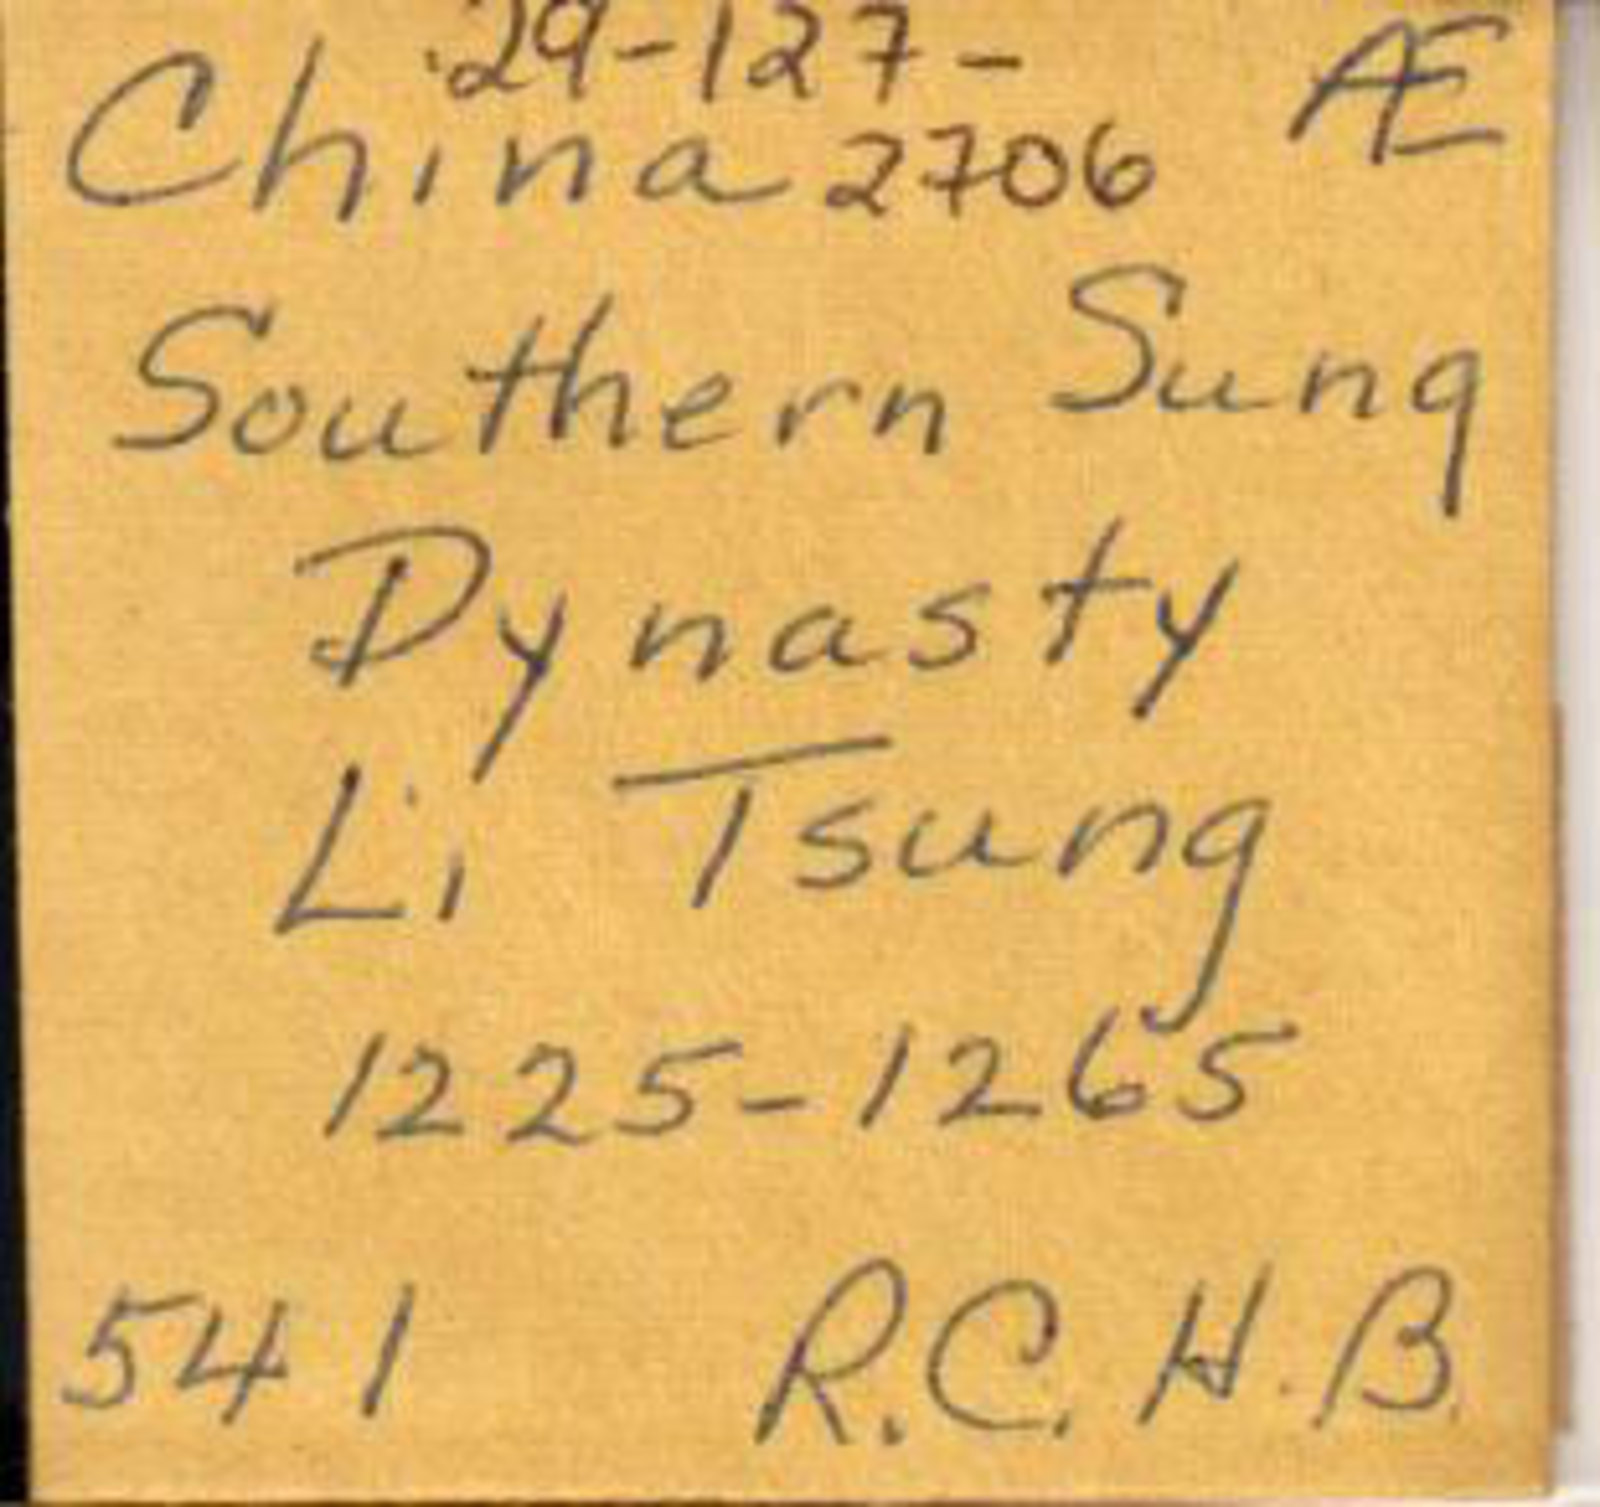 29-127-
China 2706 Æ
Southern Sung
Dynasty
Li Tsung
1225-1265
541 R.C.H.B.